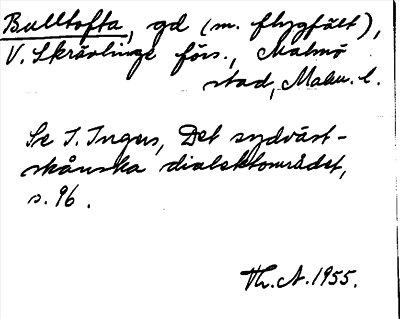 Bulltofta, gd (m. flygfält),
V. Skrävlinge förs., Malmö
stad, Malm. l.
Se I. Ingers, Det sydväst-
skånska dialektområdet,
s. 96.
Th. A. 1955.